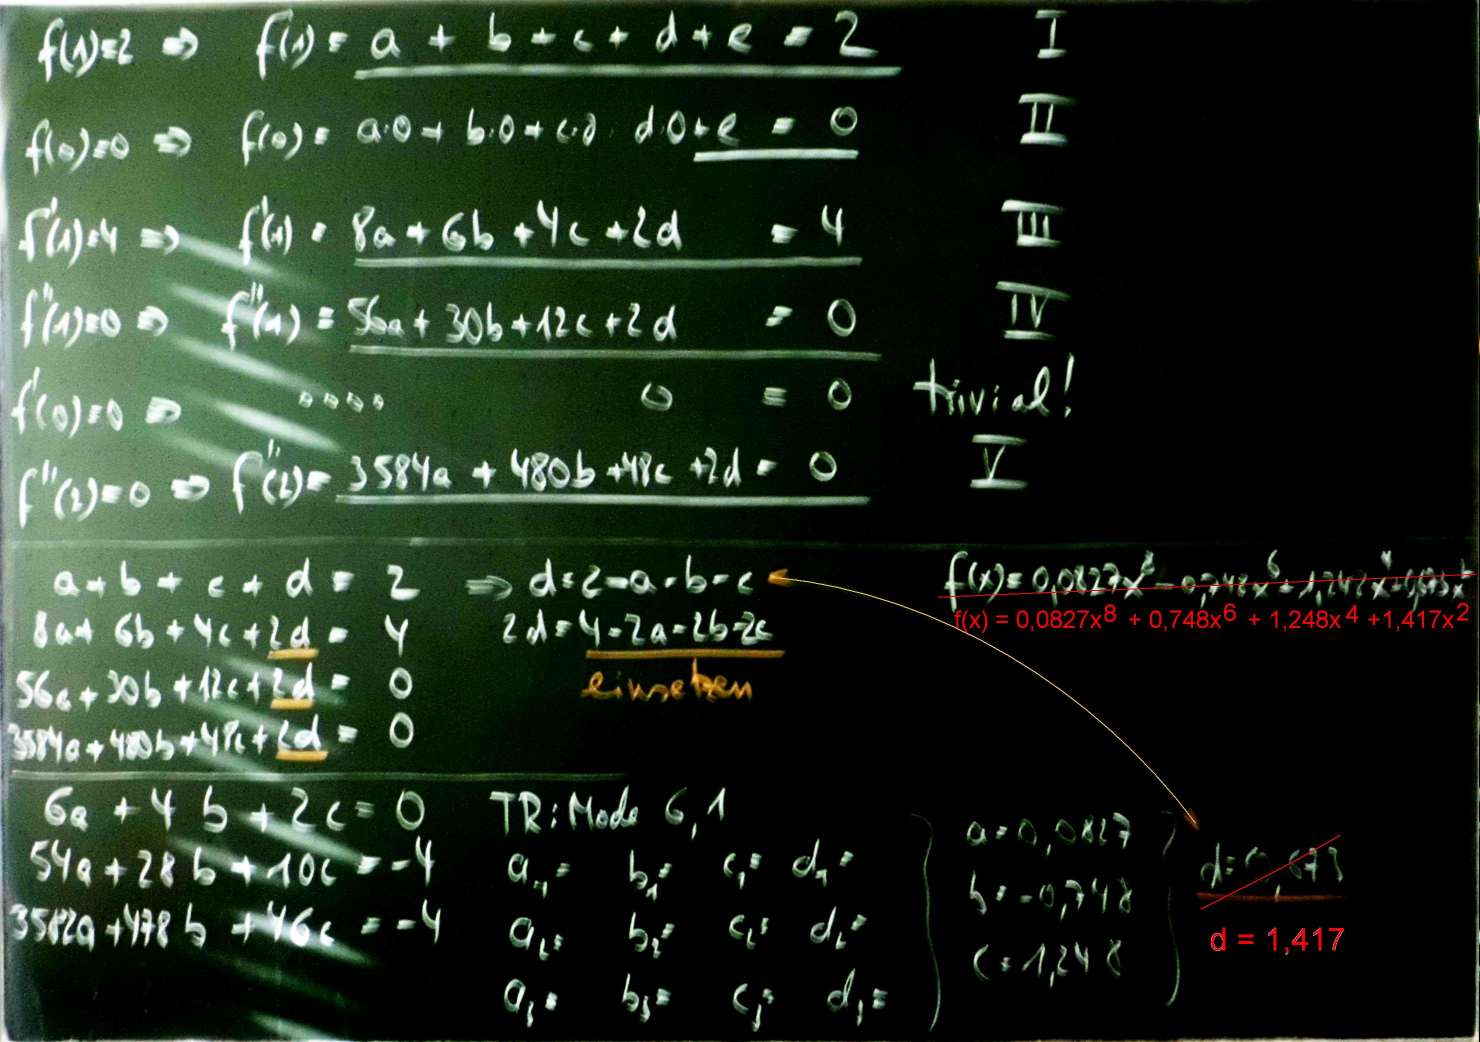 f(1)=2 ⇒ f(1) = a + b + c + d + e = 2 I
f(0)=0 ⇒ f(0) = a·0 + b·0 + c·0 d·0 + e = 0 II
f'(1)=4 ⇒ f'(1) = 8a + 6b + 4c + 2d = 4 III
f''(1)=0 ⇒ f''(1) = 56a + 30b + 12c + 2d = 0 IV
f'(0)=0 ⇒ .... 0 = 0 trivial!
f''(2)=0 ⇒ f''(2) = 3584a + 480b + 48c + 2d = 0 V
a + b + c + d = 2 ⇒ d = 2 - a - b - c
8a + 6b + 4c + 2d = 4 2d = 4 - 2a - 2b - 2c
56a + 30b + 12c + 2d = 0 einsetzen
3584a + 480b + 48c + 2d = 0
f(x) = 0,0827x⁸ - 0,748x⁶ + 1,248x⁴
f(x) = 0,0827x⁸ + 0,748x⁶ + 1,248x⁴ +1,417x²
6a + 4b + 2c = 0 TR: Mode 6,1
54a + 28b + 10c = -4 a₁= b₁= c₁= d₁=
3582a + 478b + 46c = -4 a₂= b₂= c₂= d₂=
a₃= b₃= c₃= d₃=
a = 0,0827
b = -0,748
c = 1,248
d = 0,673
d = 1,417